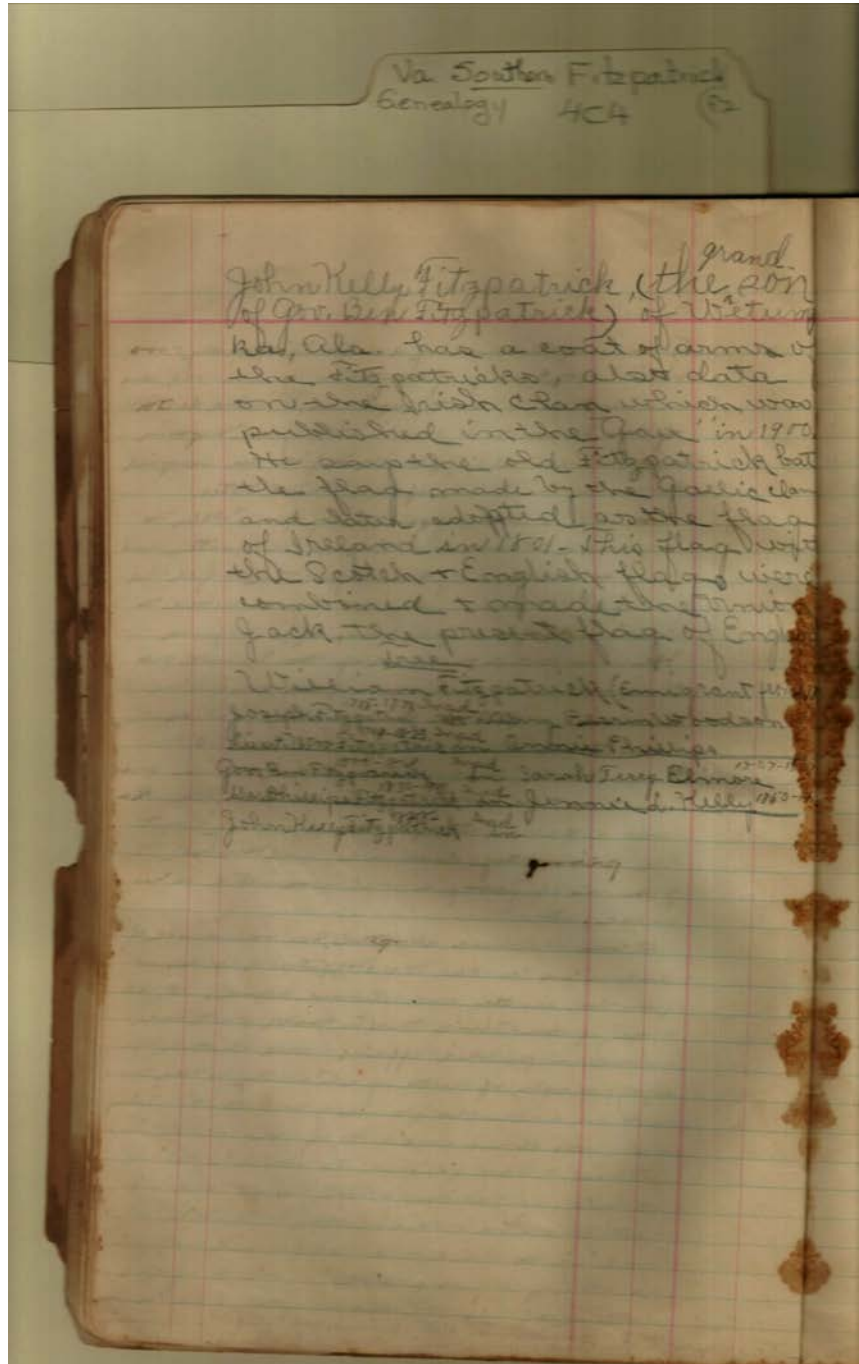 Va Southern Fitzpatrick
Genealogy 4C4
grand
John Kelly Fitzpatrick, (the son
of Gov. Ben Fitzpatrick) of Wetum
ka, Ala. has a coat of arms o
the Fitzpatricks, also data
on the Irish Clan which was
published in the in 1900
He says the old Fitzpatrick
the flag made by the Gaelic clan
and later adopted as the flag
of Ireland in 1801 - This flag
the Scotch + English flags were
combined + made the Union
Jack, the present flag of Engl
William Fitzpatrick (Emigrant
Joseph Fitzpatrick Mary Woodson
Anne Phillips
Gov Ben Fitzpatrick Sarah Terry Elmore
Phillips Fitzpatrick Jennie L. Kelly
John Kelly Fitzpatrick